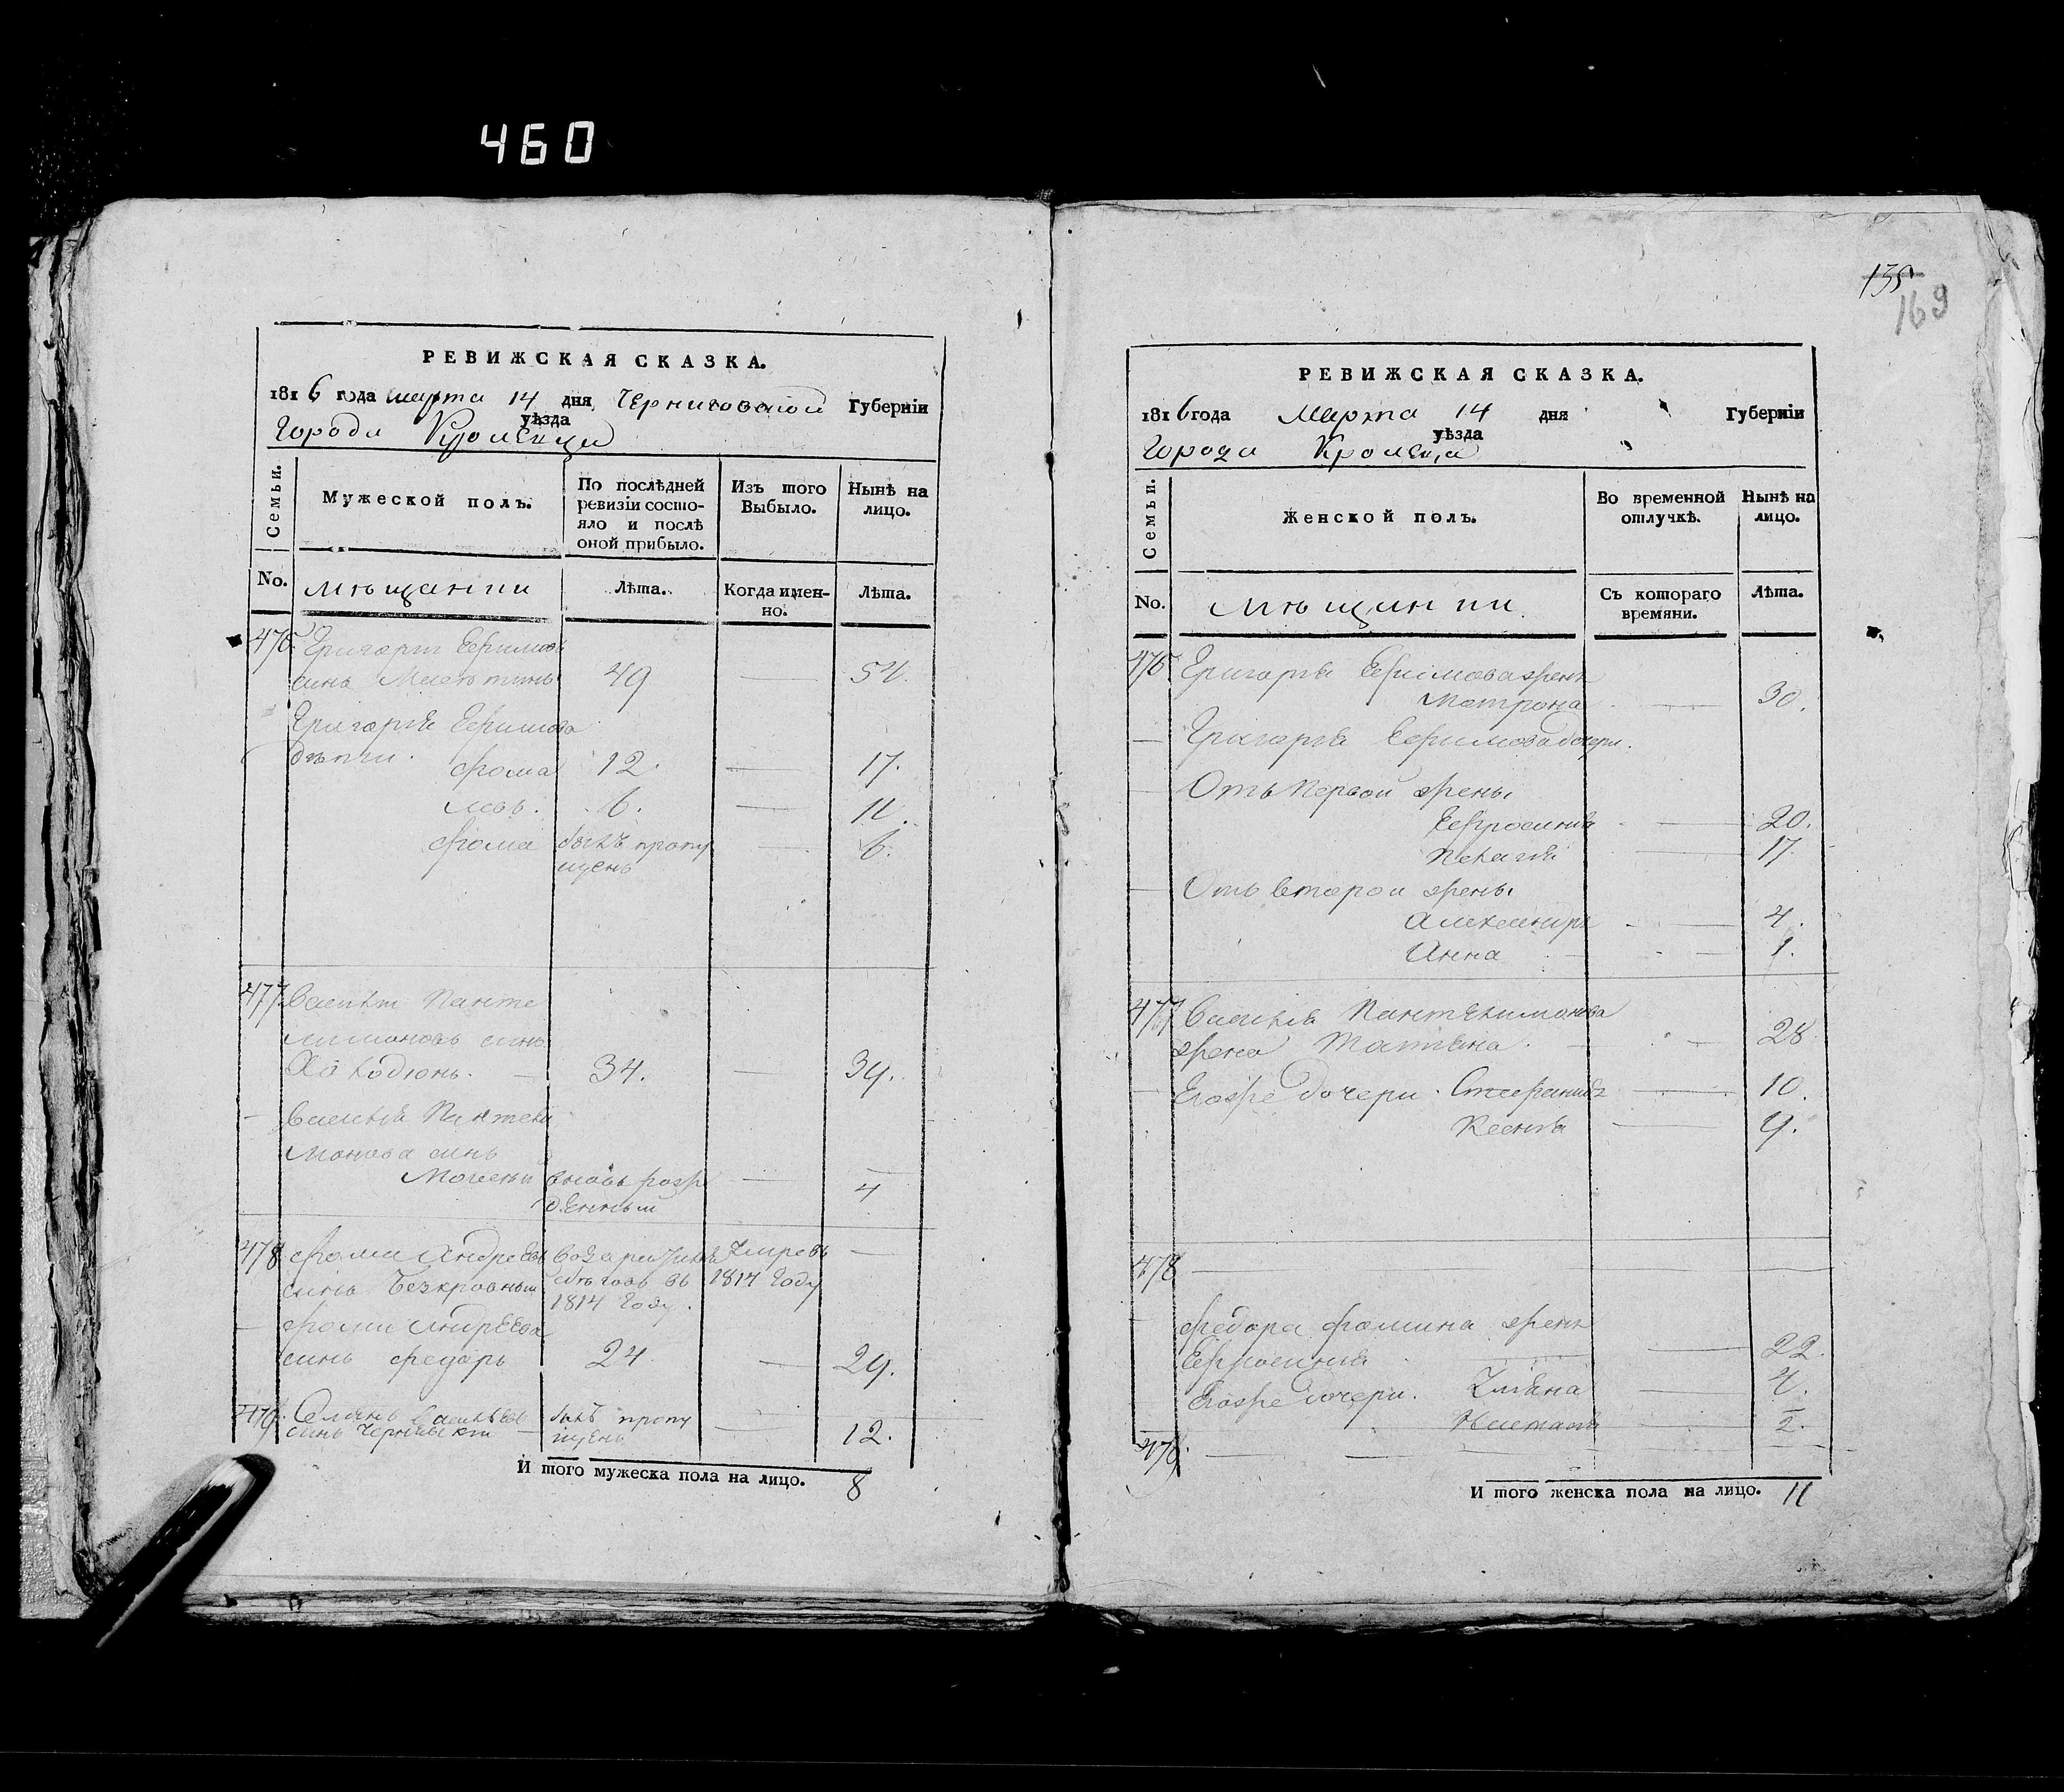 460
РЕВИЖСКАЯ СКАЗКА.
1816 года марта 14 дня Черниговской Губерніи
уѣзда
Города Кролевца
Семьи.
Мужеской полъ.
По послѣдней ревизіи состояло и послѣ оной прибыло.
Изъ того Выбыло.
Нынѣ на лицо.
No. мѣщанли Лѣта. Когда имен- но. Лѣта.
476. Григорій Ефимовъ
синъ 49 — 54.
Григорія Ефимова
дѣти.
Фома 12. — 17.
Левъ. 6. — 11.
Фома былъ пропу — 6.
щенъ
477. Василій Панте
лимоновъ синъ
34. — 39.
— Василія Пантели
монова синъ
Мойсей вновь рож — 4
денный
478 Фома Андреевъ умре въ —
синъ Безкровный 1814 году
1814 году.
— Фоми Андреева
синъ Федоръ 24 — 29.
479. Василіев былъ пропу —
синъ щенъ 12.
И того мужеска пола на лицо. 8
135
169
РЕВИЖСКАЯ СКАЗКА.
1816 года Марта 14 дня Губерніи
уѣзда
Города Кролевца
Семьи.
Женской полъ.
Во временной отлучкѣ.
Нынѣ на лицо.
No. мѣщанли Съ котораго времяни. Лѣта.
476. Григорія Ефимова жена
Матрона — 30.
— Григорія Ефимова дочери.
— Отъ первой жены
Ефросинія — 20.
Пелагія — 17
— Отъ второй жены
Александра — 4.
Анна — 1.
477 Василія Пантелимонова
жена Татіяна. — 28
— Егоже дочери. Стефанида — 10.
Ксенія — 9.
478 —
— Федора Фомина жена
Ефросинія — 22
Егоже дочери. Уліяна — 4.
Настасія — 2.
479. — — — —
И того женска пола на лицо. 11